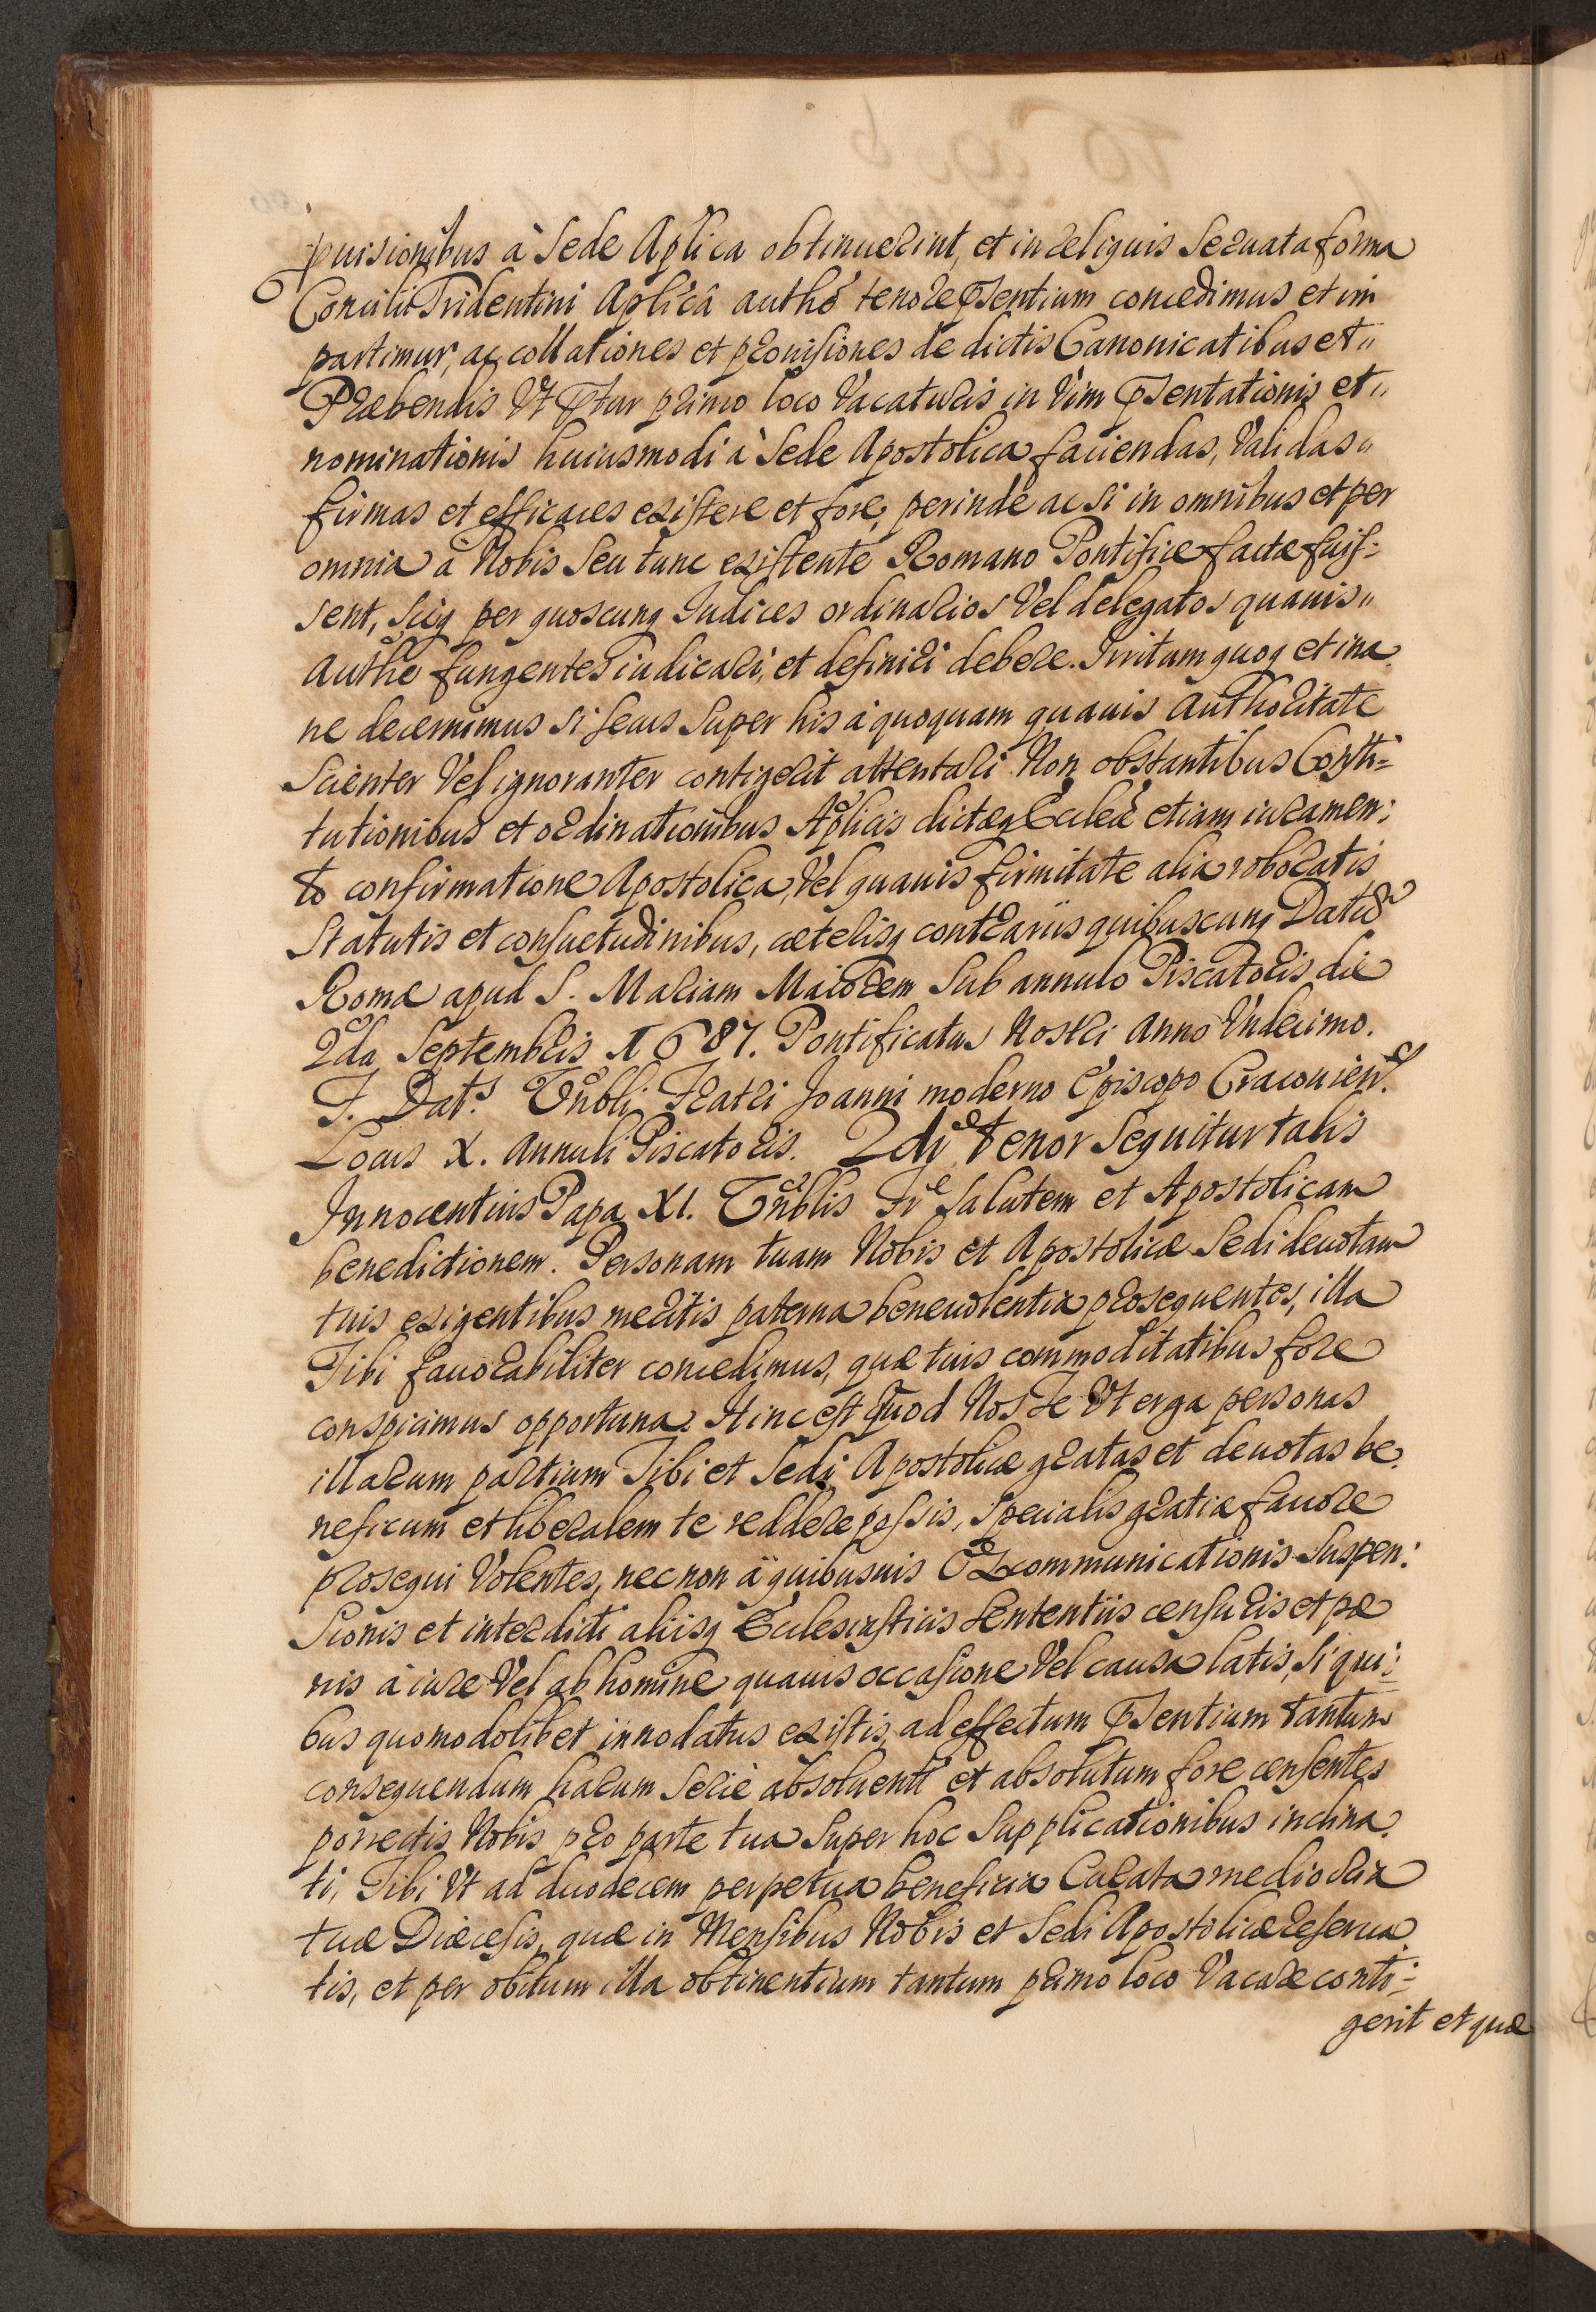 puisionibus à Sede Aplica obtinuerint, et in reliquis Seruata forma
Concilii Tridentini Aplicâ authe tenore pñsentium concedimus et im
partimur, ac collationes et prouisiones de dictis Canonicatibus et„
Præbendis Vt pfur primo loco Vacaturis in Vim pñsentationis et„
nominationis huiusmodi à Sede Apostolica faciendas, Validas„
firmas et efficaces existere et fore, perinde ac si in omnibus et per
omnia à Nobis Seu tunc existente Romano Pontifice factæ fuis=
sent, sicq per quoscunq Iudices ordinarios Vel delegatos quauis„
Authe fungentes iudicari, et definiri debere. Irritum quoq et ina
ne decernimus si secus Super his à quoquam quauis Authoritate
Scienter Vel ignoranter contigerit attentari. Non obstantibus Consti=
tutionibus et ordinationibus Aplicis dictæq Eccleæ etiam iuramen:
to confirmatione Apostolica, Vel quauis firmitate alia roboratis
Statutis et consuetudinibus, cæterisq contrariis quibuscunq Datũ
Romæ apud S. Mariam Maiorem Sub annulo Piscatoris die
2da Septembris 1687. Pontificatus Nostri Anno Vndecimo.
F. Dats Vnbli Fratri Joanni moderno Episcopo Cracouien.
Locus X. Annuli Piscatoris. 2di Tenor Sequitur talis
Innocentius Papa XI. Vnblis Fre Salutem et Apostolicam
benedictionem. Personam tuam Nobis et Apostolicæ Sedi deuotam
tuis exigentibus meritis paterna beneuolentia prosequentes, illa
Tibi fauorabiliter concedimus, quæ tuis commoditatibus fore
conspicimus opportuna. Hinc est quod Nos Te Vt erga personas
illarum partium Tibi et Sedi Apostolicæ gratas et deuotas be
neficum et liberalem te reddere possis, Specialis gratiæ fauore
prosequi Volentes, nec non à quibusuis Excommunicationis Suspen:
Sionis et interdicti aliisq Ecclesiasticis Sententiis censuris et pæ
nis à iure Vel ab homine quauis occasione Vel causa latis, Si qui:
bus quomodolibet innodatus existis, ad effectum pñsentium tantum
consequendum harum Serie absoluentes et absolutum fore censentes
porrectis Nobis pro parte tua Super hoc Supplicationibus inclina
ti, Tibi Vt ad duodecem perpetua beneficia Curata mediocria
tuæ Diæcesis, quæ in Mensibus Nobis et Sedi Apostolicæ reserua
tis, et per obitum illa obtinentium tantum primo loco Vacare conti=
gerit et quæ